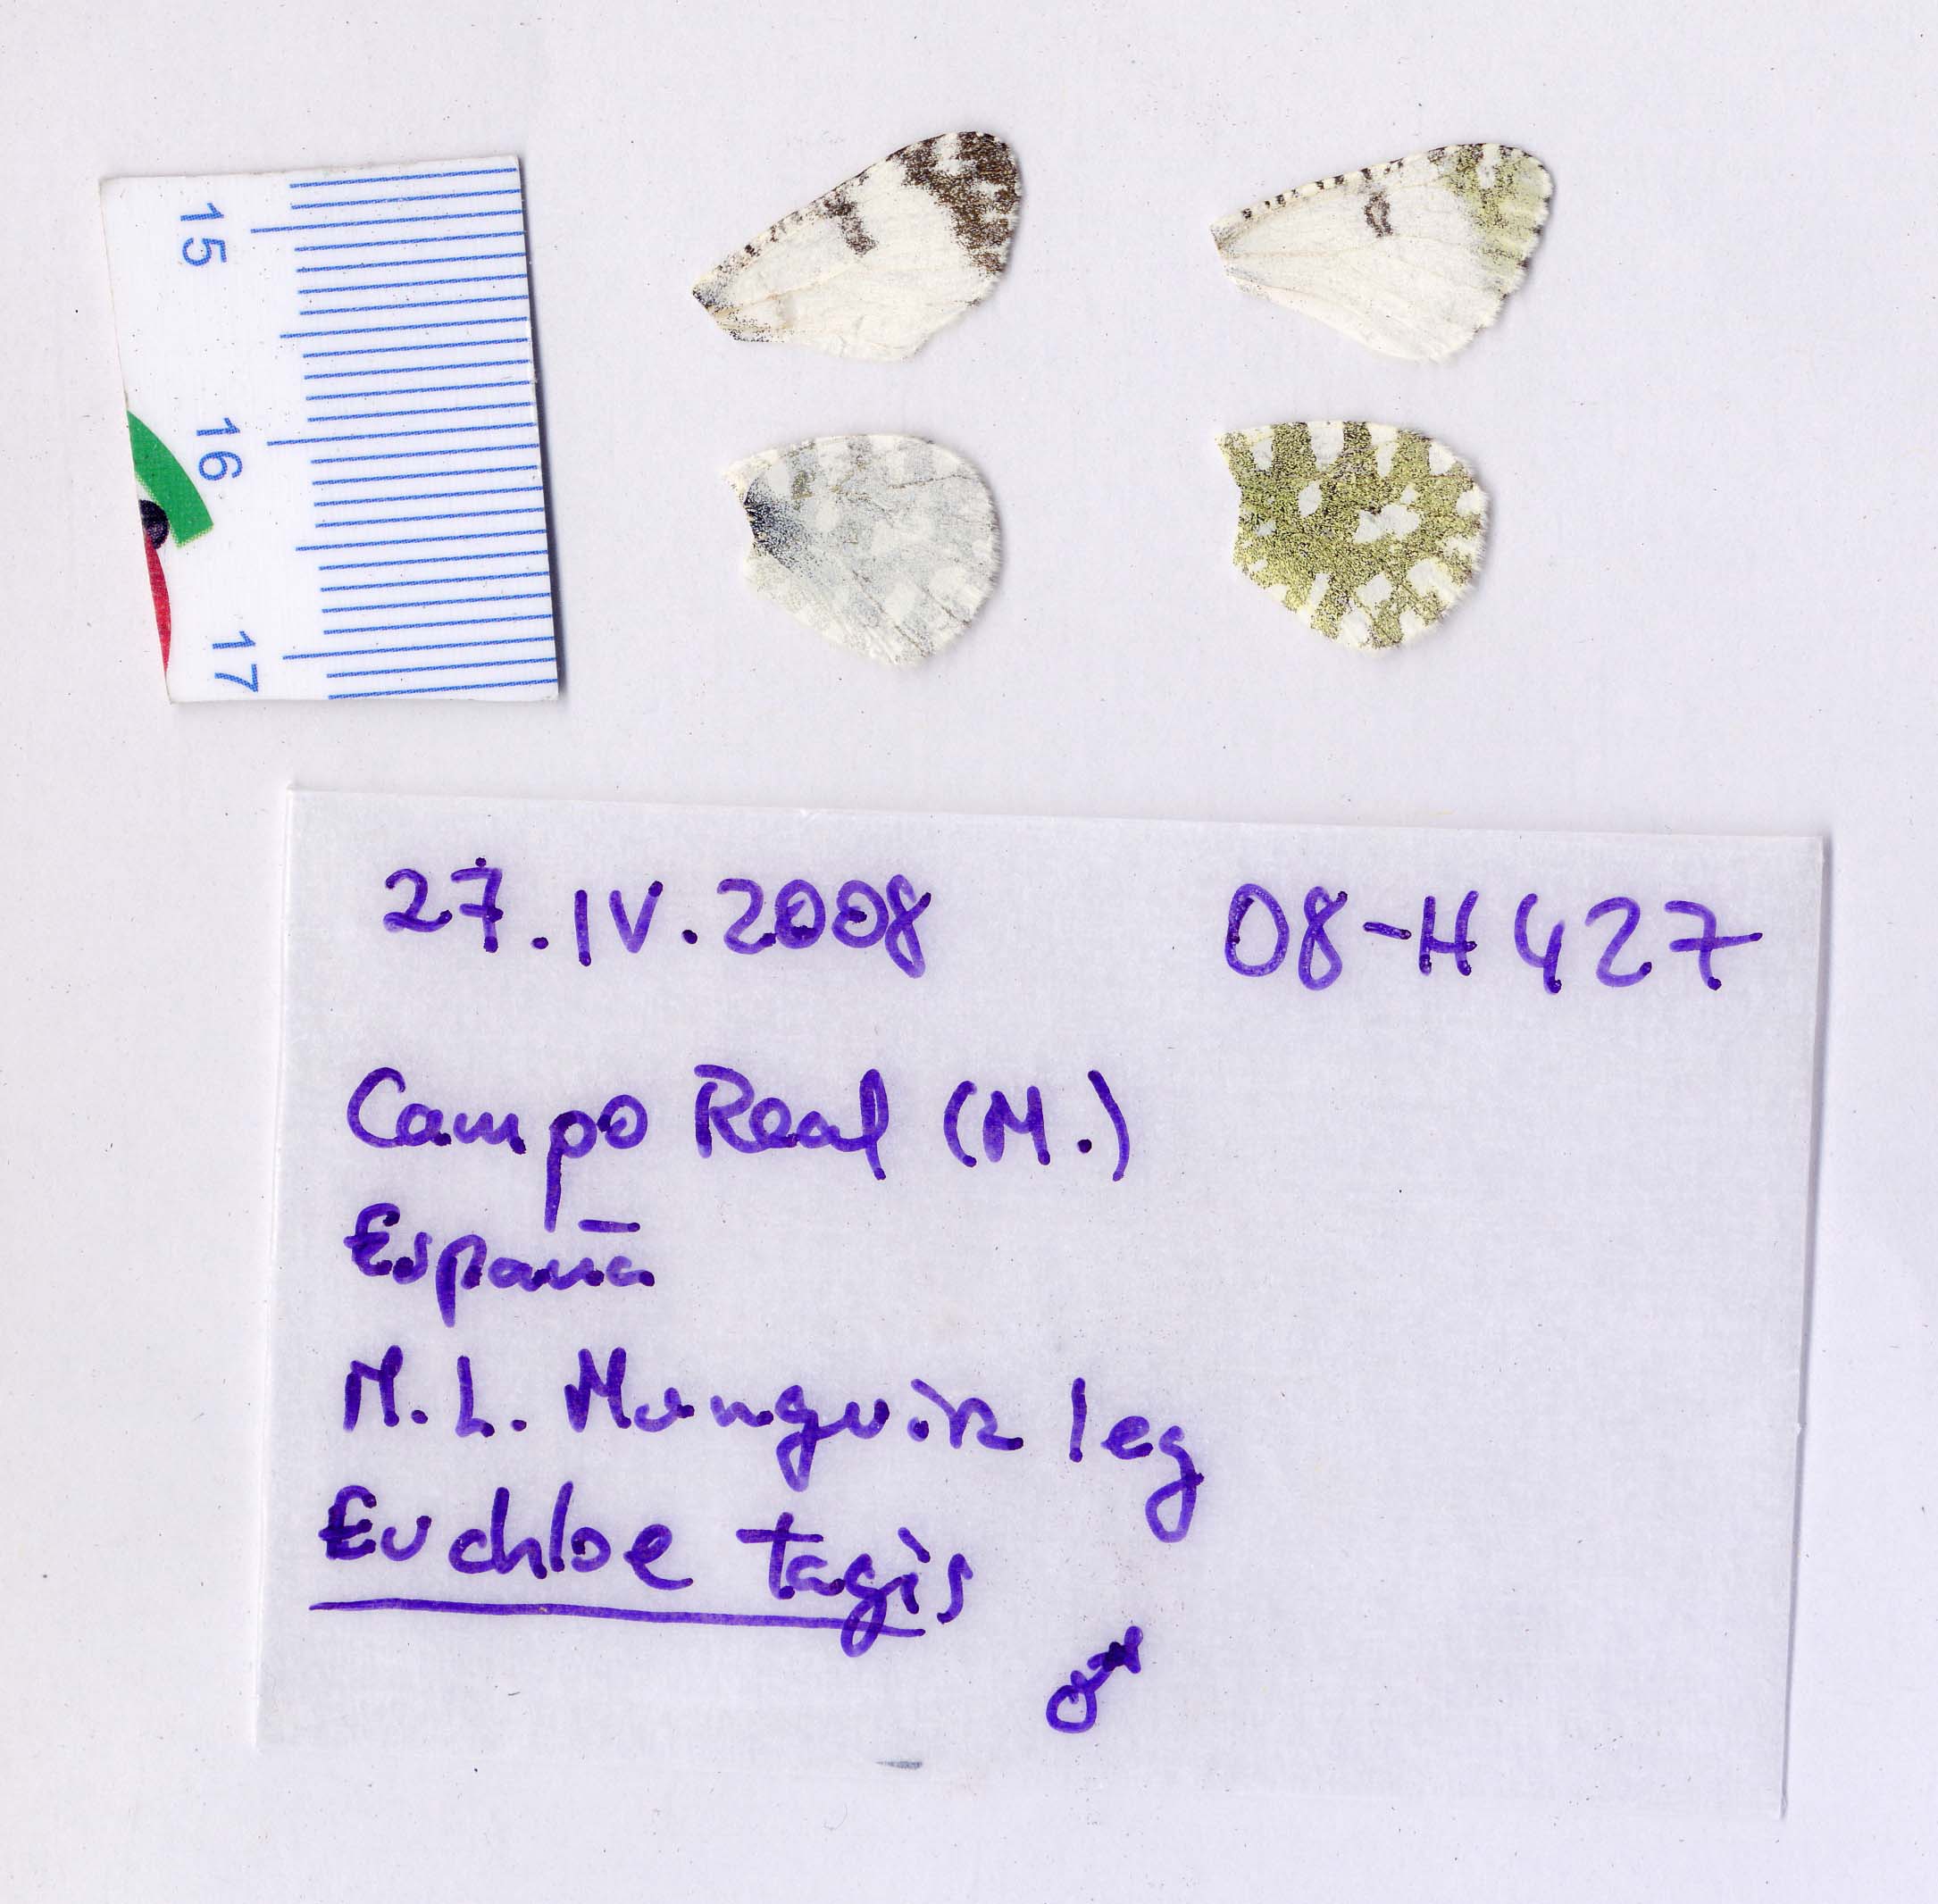 15
16
17
27.IV.2008 08-H427
Campo Real (M.)
España
M.L. Munguira leg
Euchloe tagis
♂